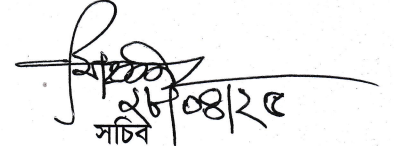 ২৮/০৪/২৫
সচিব